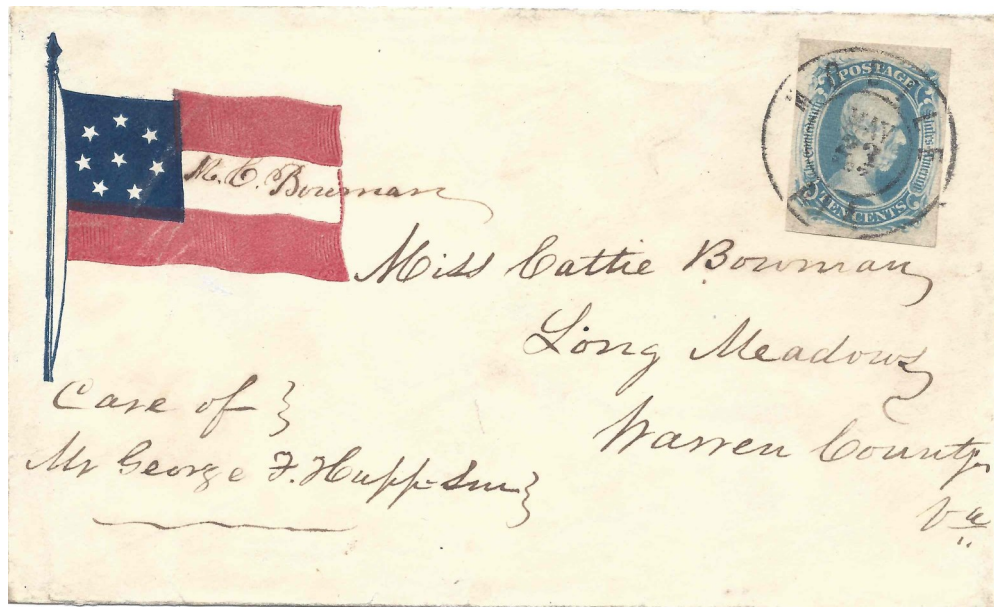 M. C. Bowman
POSTAGE
TEN CENTS
MOBILE
MAY
Miss Cattie Bowman
Long Meadows
Warren County
Va
Care of }
Mr George F. Hupp Snr }